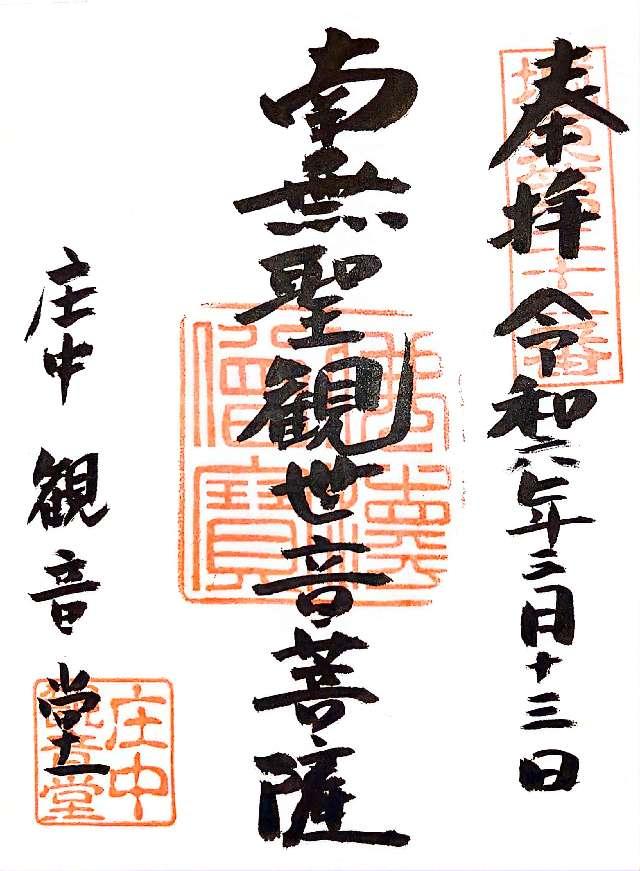 奉拝 令和六年二月十三日
南無聖観世音菩薩
庄中 観音堂
僧寶
庄中
観音堂